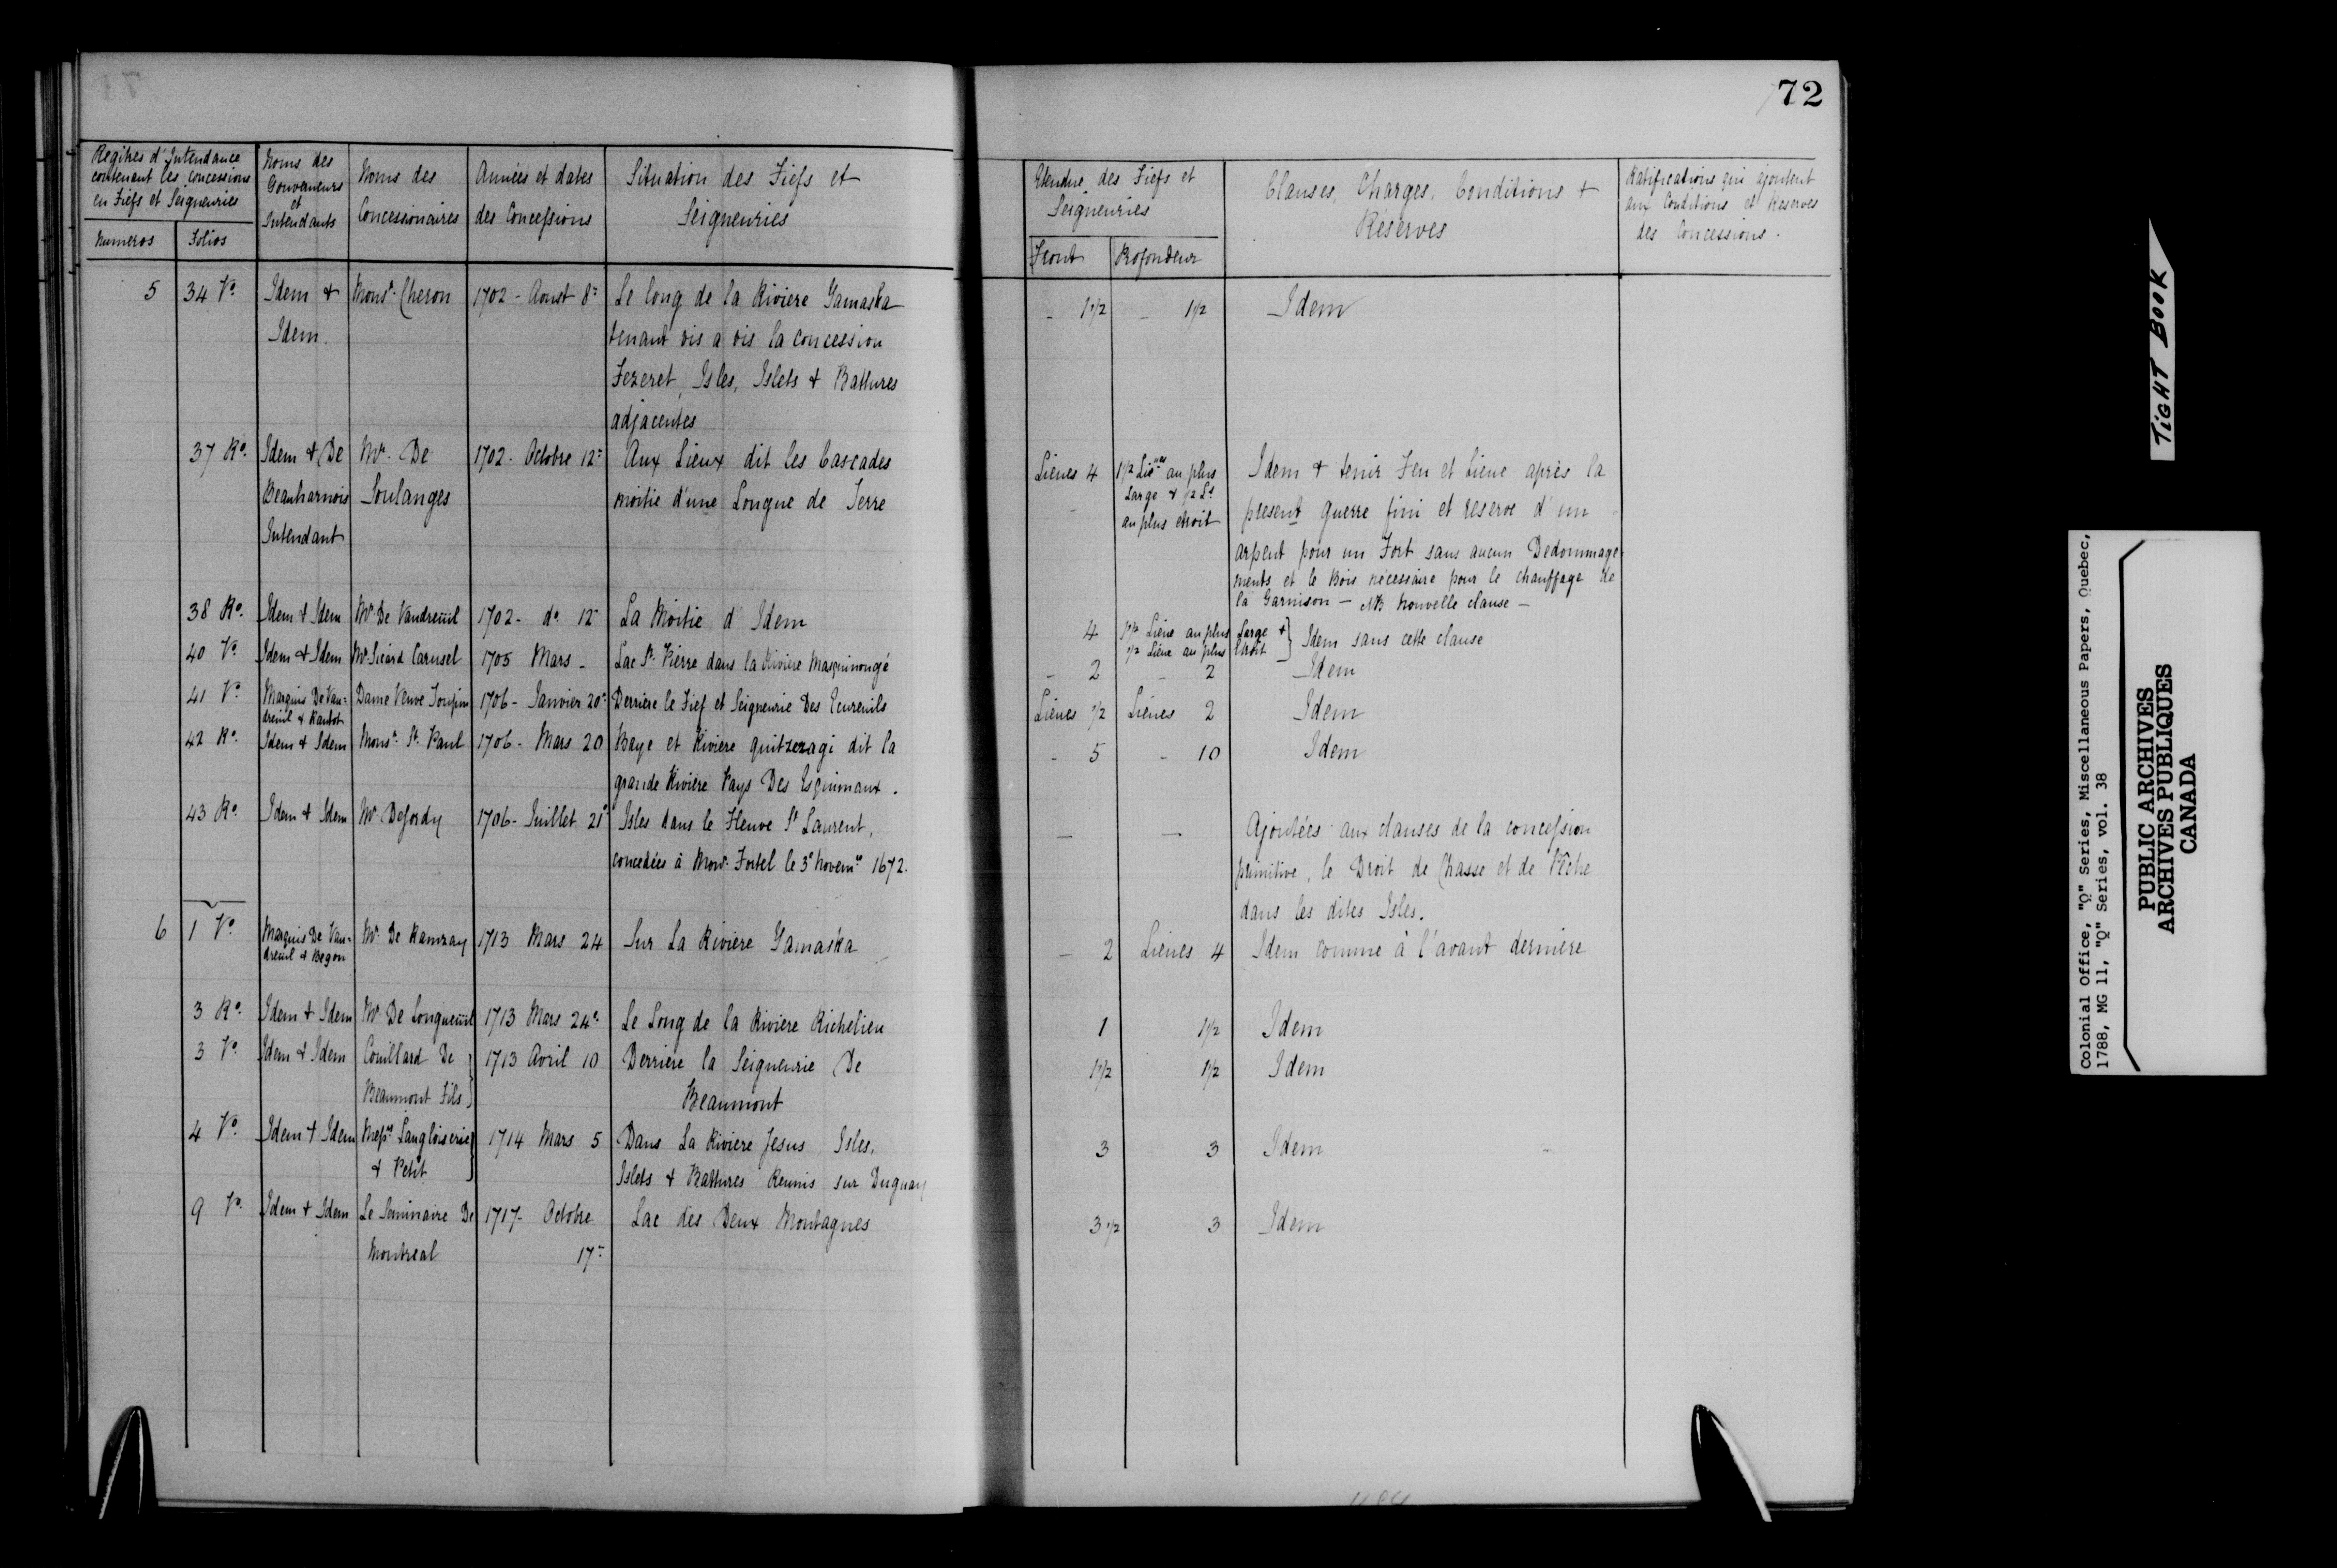 72
Regitres d'Intendance
contenant les concessions
en Fiefs et Seigneuries
Numeros
Folios
Noms des
Gouverneurs
et
Intendants
Noms des
Concessionaires
Années et dates
des Concessions
Situation des Fiefs et
Seigneuries
Etendue des Fiefs et
Seigneuries
Front
Profondeur
Clauses, Charges, Conditions +
Réserves
Ratifications qui ajoutent
aux Conditions et Reserves
des Concessions.
5 34 Vo. Idem + Monsr. Cheron 1702 - Aoust 8= Le long de la Riviere Yamaska - 1 1/2 - 1 1/2 Idem
Idem. tenant vis a vis la concession
Fezeret, Isles, Islets + Battures
adjacentes
37 Ro. Idem + De Mr. De 1702 - Octobre 12= Aux Lieux dit les Cascades Lieues 4 1 1/2 Lieues au plus Idem + tenir Feu et Lieue après la
Beauharnois Soulanges moitie d'une Longue de Terre Large + 1/2 Le present guerre fini et reserve d'un
Intendant au plus etroit arpent pour un Fort sans aucun Dedommage-
ments et le Bois nécessaire pour le chauffage de
la Garnison - NB Nouvelle clause -
38 Ro. Idem + Idem Mr De Vaudreuil 1702 - do 12 La Moitie d'Idem 4 1 1/2 Lieue au plus Large + } Idem sans cette clause
1/2 Lieue au plus Etroit
40 Vo. Idem + Idem Mr Sicard Carusel 1705 Mars - Lac St. Pierre dans la Riviere Masquinongé - 2 - 2 Idem
41 Vo. Marquis De Vau- Dame Veuve Toupin 1706 - Janvier 20= Derriere le Fief et Seigneurie Des Ecureuils Lieues 1/2 Lieues 2 Idem
dreuil + Raudot
42 Ro. Idem + Idem Monsr. St. Paul 1706 - Mars 20 Baye et Riviere quitzezagi dit la - 5 - 10 Idem
grande Rivière Pays Des Esquimaux.
43 Ro. Idem + Idem Mr Dejordy 1706 - Juillet 21e Isles dans le Fleuve St Laurent, — — Ajoutées aux clauses de la concession
concedées à Monr. Fortel le 3e Novemre 1672. primitive, le Droit de Chasse et de Pêche
dans les dites Isles.
6 1 Vo. Marquis De Vau- Mr. De Ramzay 1713 Mars 24 Sur La Riviere Yamaska - 2 Lieues 4 Idem comme à l'avant derniere
dreuil + Begon
3 Ro. Idem + Idem Mr. De Longueuil 1713 Mars 24e Le Long de la Riviere Richelieu 1 1 1/2 Idem
3 Vo. Idem + Idem Couillard De } 1713 Avril 10 Derriere la Seigneurie De 1 1/2 1 1/2 Idem
Beaumont Fils Beaumont
4 Vo. Idem + Idem Messrs Langloiserie } 1714 Mars 5 Dans La Riviere Jesus Isles, 3 3 Idem
+ Petit Islets + Battures Reunis sur Duguay
9 Vo. Idem + Idem Le Seminaire De 1717 - Octobre Lac des Deux Montagnes 3 1/2 3 Idem
Montreal 17=
TIGHT BOOK
Colonial Office, "Q" Series, Miscellaneous Papers, Quebec,
1788, MG 11, "Q" Series, vol. 38
PUBLIC ARCHIVES
ARCHIVES PUBLIQUES
CANADA